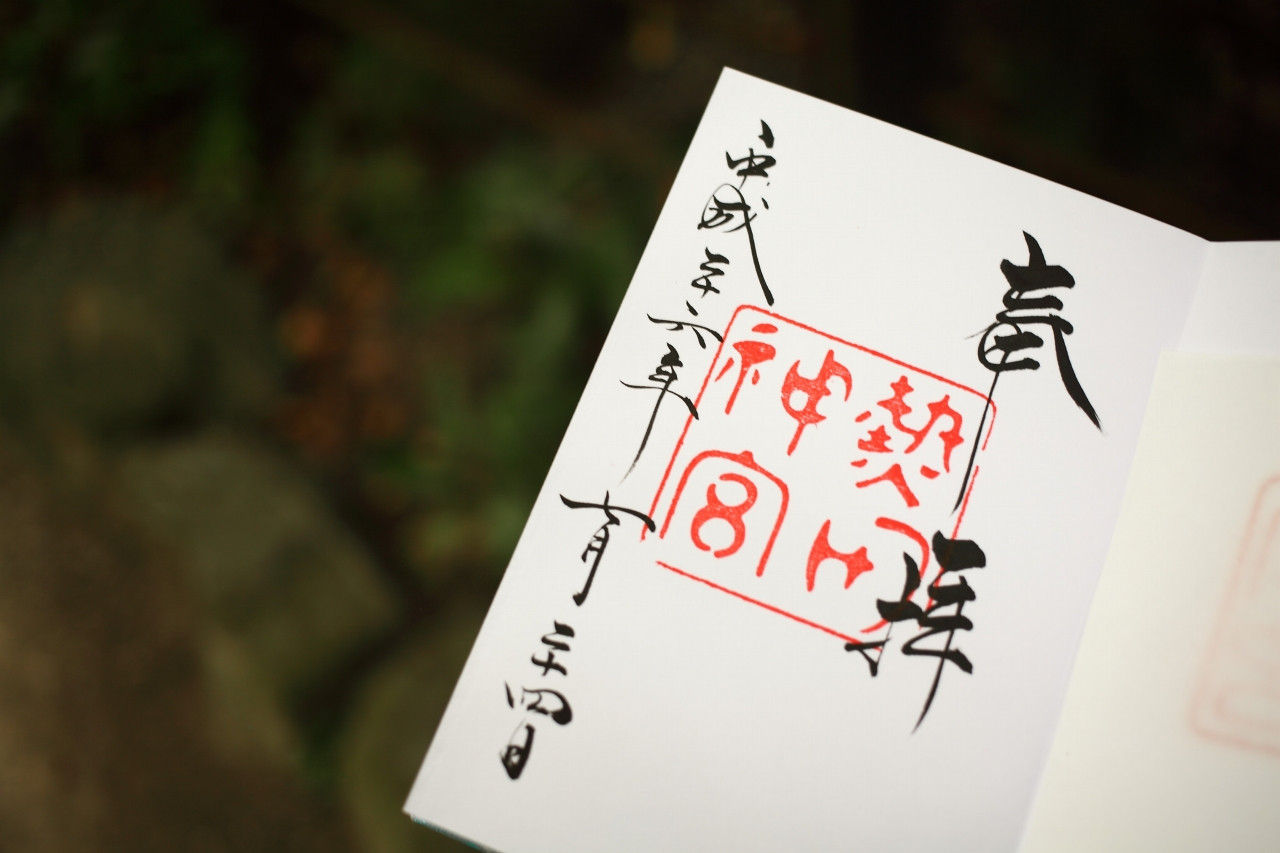 奉拝
熱田
神宮
平成二十六年十月二十四日